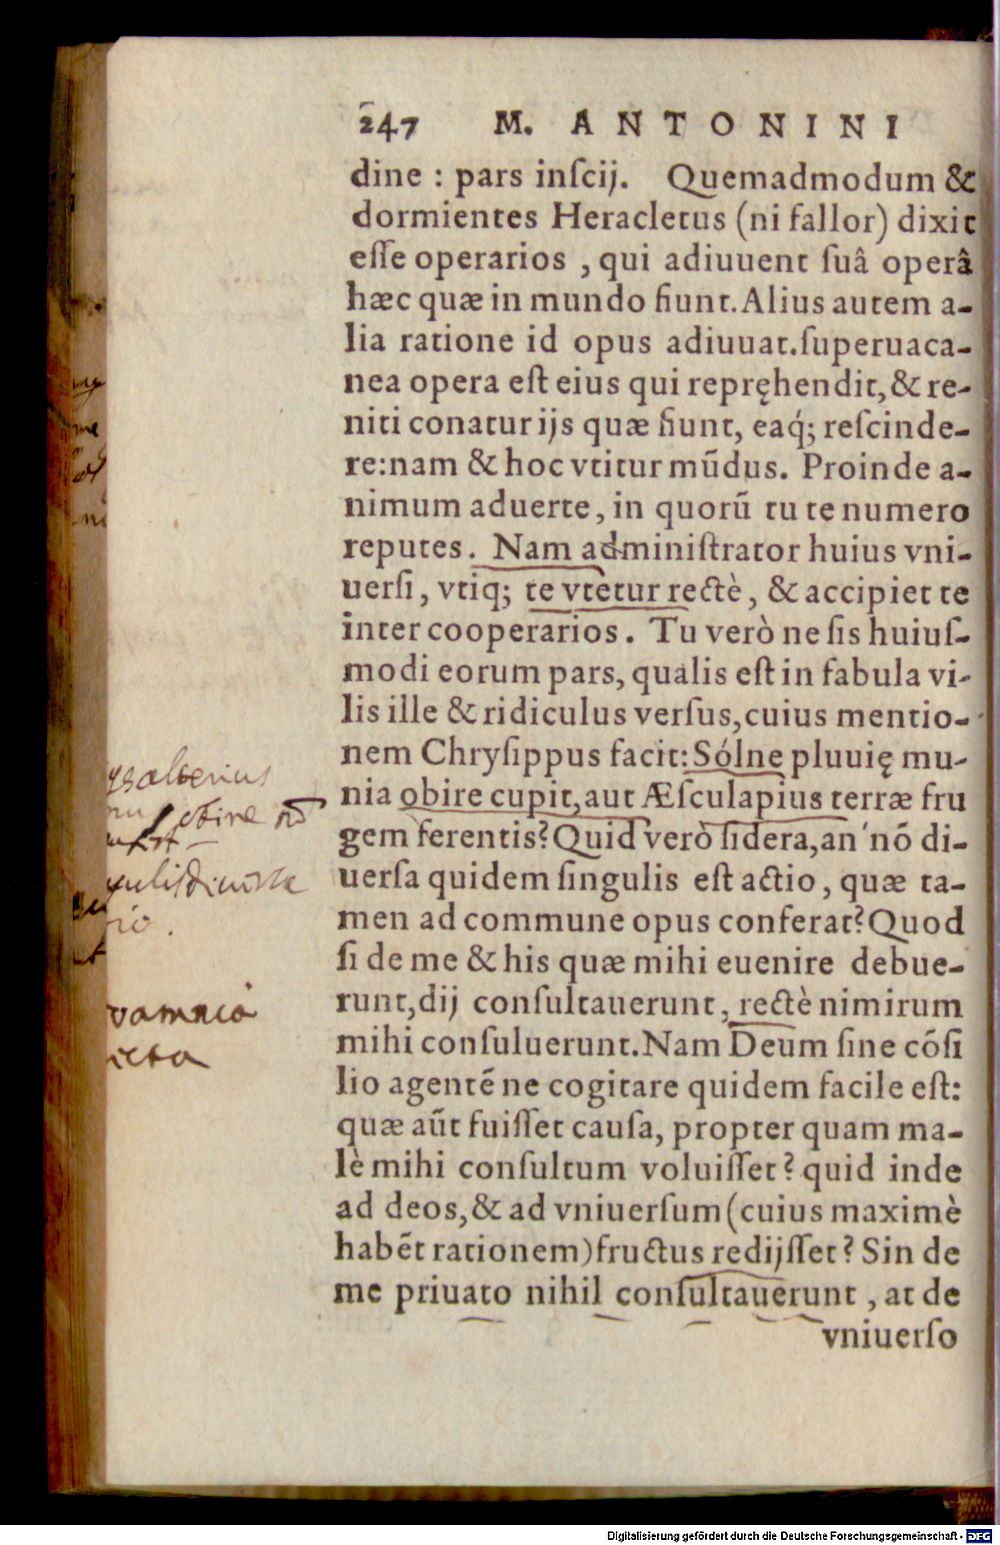 247 M. ANTONINI
dine : pars inſcij. Quemadmodum &
dormientes Heracletus (ni fallor) dixit
eſſe operarios , qui adiuuent ſuâ operâ
hæc quæ in mundo fiunt. Alius autem a-
lia ratione id opus adiuuat. ſuperuaca-
nea opera eſt eius qui repręhendit, & re-
niti conatur ijs quæ fiunt, eaq́; reſcinde-
re: nam & hoc vtitur mũdus. Proinde a-
nimum aduerte, in quorũ tu te numero
reputes. Nam adminiſtrator huius vni-
uerſi, vtiq; te vtetur rectè, & accipiet te
inter cooperarios. Tu verò ne ſis huiuſ-
modi eorum pars, qualis eſt in fabula vi-
lis ille & ridiculus verſus, cuius mentio-
nem Chryſippus facit: Sólne pluuię mu-
nia obire cupit, aut Æſculapius terræ fru
gem ferentis? Quid verò ſidera, an nõ di-
uerſa quidem ſingulis eſt actio, quæ ta-
men ad commune opus conferat? Quod
ſi de me & his quæ mihi euenire debue-
runt, dij conſultauerunt, rectè nimirum
mihi conſuluerunt. Nam Deum ſine cõſi
lio agentẽ ne cogitare quidem facile eſt:
quæ aũt fuiſſet cauſa, propter quam ma-
lè mihi conſultum voluiſſet? quid inde
ad deos, & ad vniuerſum (cuius maximè
habẽt rationem) fructus redijſſet? Sin de
me priuato nihil conſultauerunt, at de
vniuerſo
alterius
obire
Digitalisierung gefördert durch die Deutsche Forschungsgemeinschaft - DFG